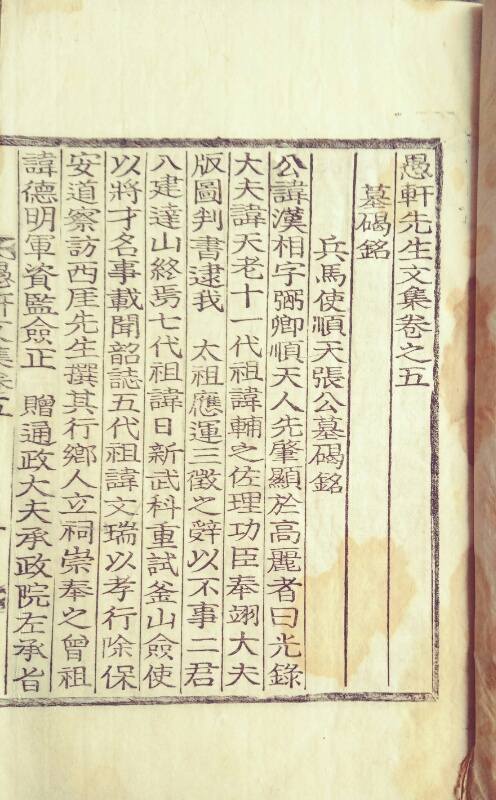 愚軒先生文集卷之五
墓碣銘
兵馬使順天張公墓碣銘
公諱漢相字弼卿順天人先肇顯於高麗者曰光錄
大夫諱天老十一代祖諱輔之佐理功臣奉翊大夫
版圖判書逮我 太祖應運三徵之辭以不事二君
入建達山終焉七代祖諱日新武科重試釜山僉使
以將才名事載聞韶誌五代祖諱文瑞以孝行除保
安道察訪西厓先生撰其行鄉人立祠崇奉之曾祖
諱德明軍資監僉正 贈通政大夫承政院左承旨
愚軒文集卷五